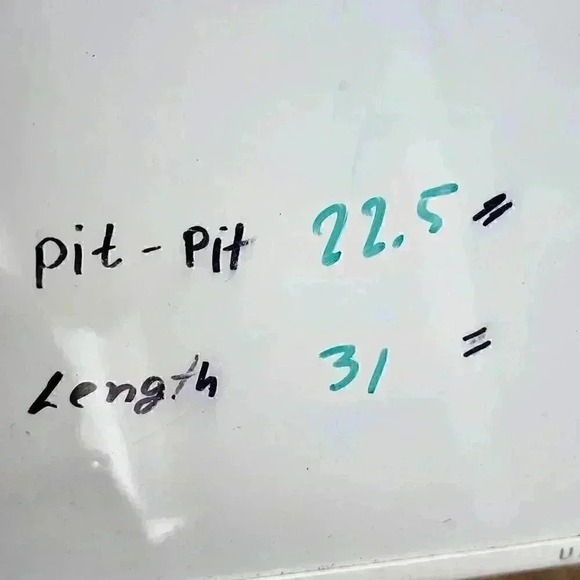 pit - Pit 22.5 "
Length 31 "